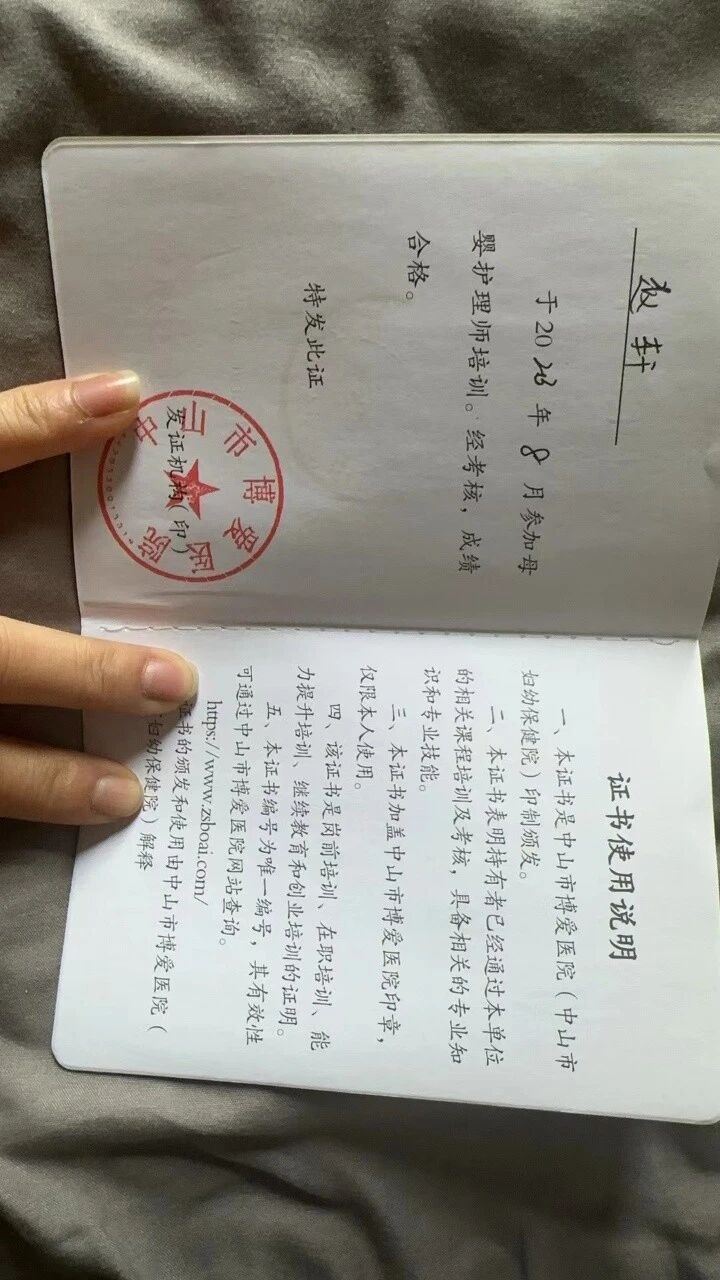 轩
于2023年8月参加母
婴护理师培训。经考核，成绩
合格。
特发此证
发证机构（印）
中山市博爱医院
证书使用说明
一、本证书是中山市博爱医院（中山市
妇幼保健院）印制颁发。
二、本证书表明持有者已经通过本单位
的相关课程培训及考核，具备相关的专业知
识和专业技能。
三、本证书加盖中山市博爱医院印章，
仅限本人使用。
四、该证书是岗前培训、在职培训、能
力提升培训、继续教育和创业培训的证明。
五、本证书编号为唯一编号，其有效性
可通过中山市博爱医院网站查询。
https://www.zsboai.com/
证书的颁发和使用由中山市博爱医院（
妇幼保健院）解释